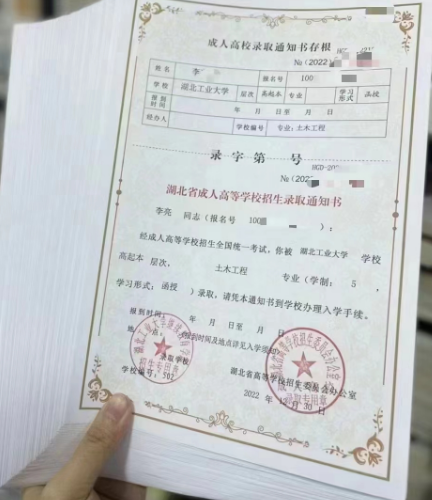 成人高校录取通知书存根
№(2022
姓名 李 报名号 100
学校 湖北工业大学 层次 高起本 专业 学习形式 函授
报到时间 年 月 日至 月 日
经办人 学校编号 专业:土木工程
录字第 号
HGD-20
№(202
湖北省成人高等学校招生录取通知书
李亮 同志(报名号 100 ):
经成人高等学校招生全国统一考试,你被 湖北工业大学 学校
高起本 层次, 土木工程 专业(学制: 5 ,
学习形式:函授 )录取,请凭本通知书到学校办理入学手续。
报到时间: 年 月 日至 月 日
地 点: (报到时间及地点详见入学须知)
录取学校
学校编号:502
招生专用章
湖北省高等学校招生委员会办公室
2022 年 12月 30 日
录取专用章